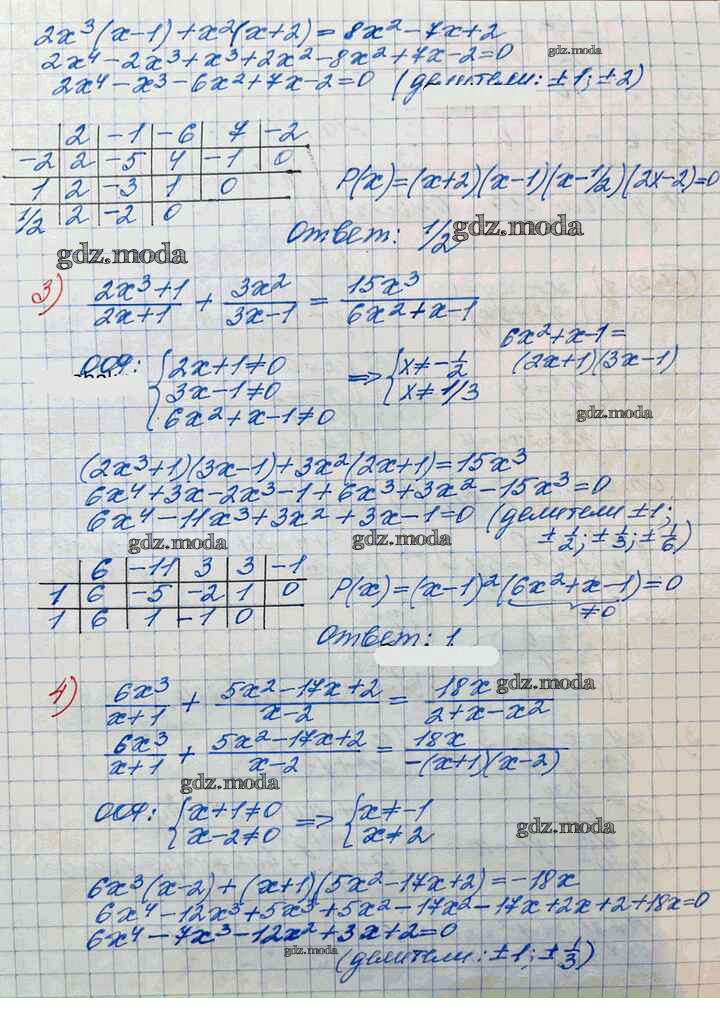 2x³(x-1)+x²(x+2)=8x²-7x+2
gdz.moda
2x⁴-2x³+x³+2x²-8x²+7x-2=0
2x⁴-x³-6x²+7x-2=0 (делители: ±1; ±2)
2 -1 -6 7 -2
-2 2 -5 4 -1 0
1 2 -3 1 0
1/2 2 -2 0
P(x)=(x+2)(x-1)(x-1/2)(2x-2)=0
Ответ: 1/2
gdz.moda
gdz.moda
3) (2x³+1)/(2x+1) + 3x²/(3x-1) = 15x³/(6x²+x-1)
6x²+x-1=
(2x+1)(3x-1)
ООУ: {2x+1≠0 => {x≠-1/2
3x-1≠0 x≠1/3
6x²+x-1≠0
gdz.moda
(2x³+1)(3x-1)+3x²(2x+1)=15x³
6x⁴+3x-2x³-1+6x³+3x²-15x³=0
6x⁴-11x³+3x²+3x-1=0 (делители ±1;
±1/2; ±1/3; ±1/6)
gdz.moda gdz.moda
6 -11 3 3 -1
1 6 -5 -2 1 0
1 6 1 -1 0
P(x)=(x-1)²(6x²+x-1)=0
≠0
Ответ: 1
4) 6x³/(x+1) + (5x²-17x+2)/(x-2) = 18x/(2+x-x²)
gdz.moda
6x³/(x+1) + (5x²-17x+2)/(x-2) = 18x/(-(x+1)(x-2))
gdz.moda
ООУ: {x+1≠0 => {x≠-1
x-2≠0 x≠2
gdz.moda
6x³(x-2)+(x+1)(5x²-17x+2)=-18x
6x⁴-12x³+5x³+5x²-17x²-17x+2x+2+18x=0
6x⁴-7x³-12x²+3x+2=0
gdz.moda
(делители: ±1; ±1/3)